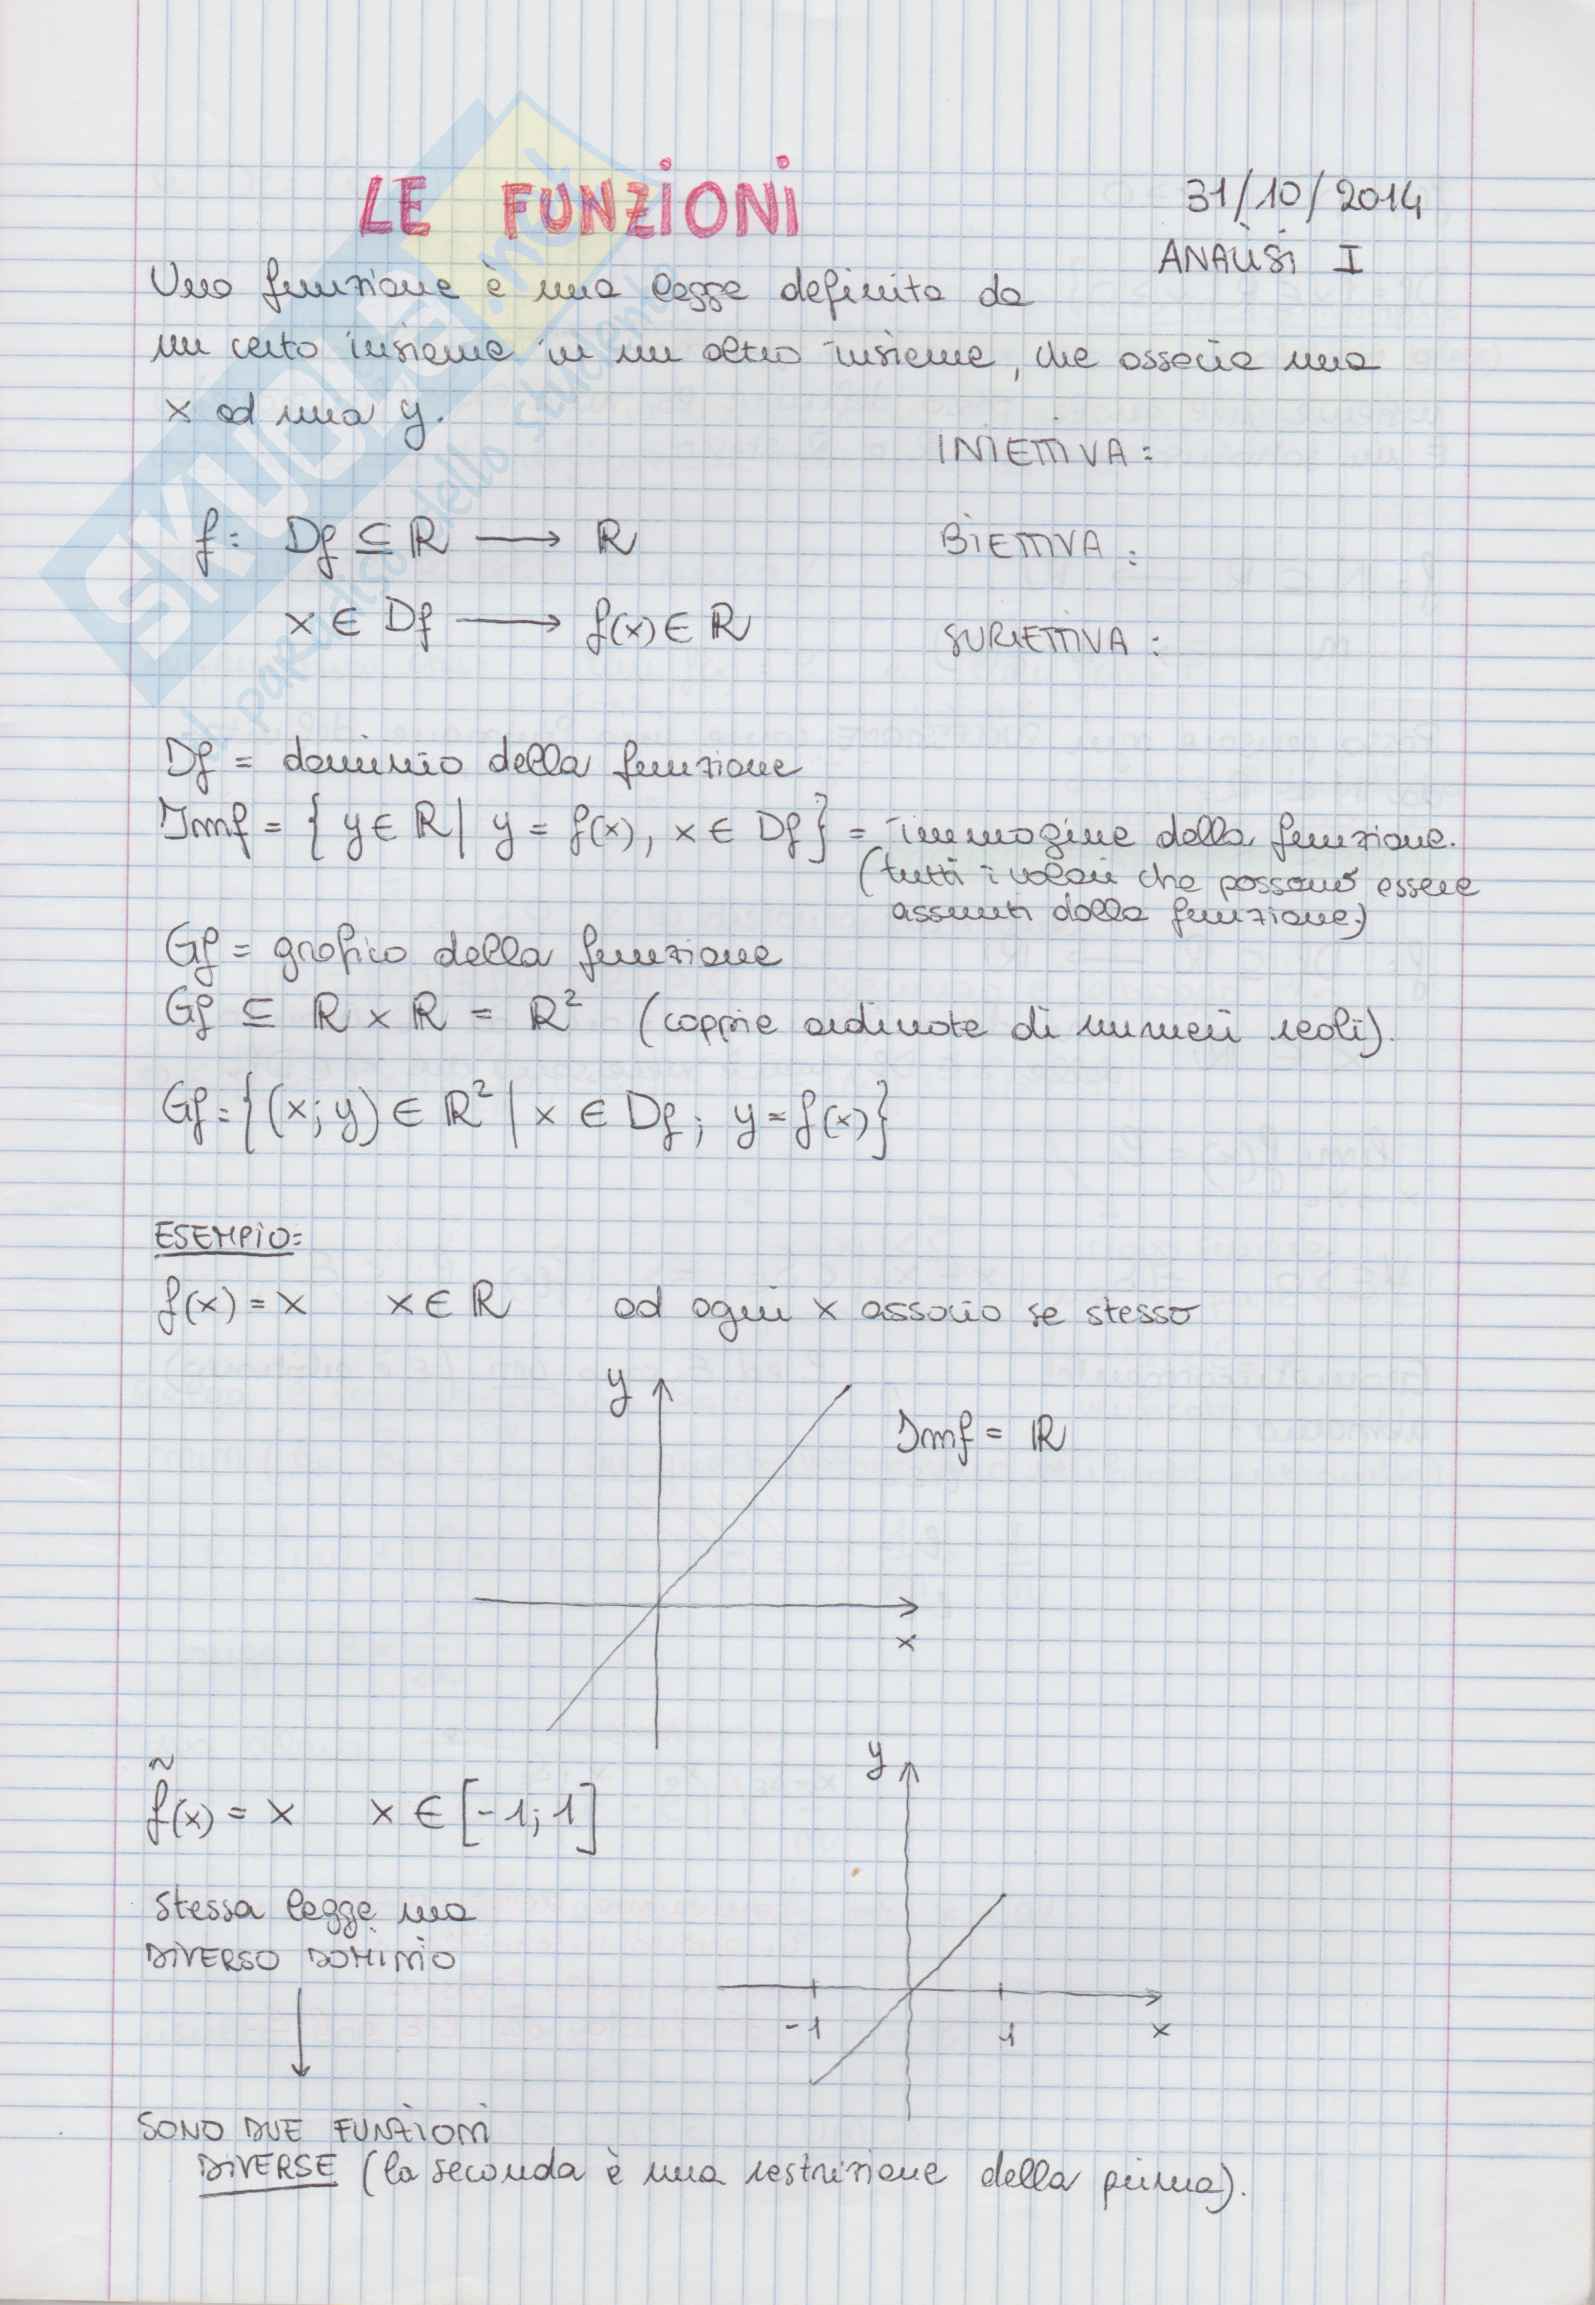 LE FUNZIONI
31/10/2014
ANALISI I
Una funzione è una legge definita da
un certo insieme in un altro insieme, che associa una
x ad una y.
INIETTIVA:
f: Df ⊆ ℝ ⟶ ℝ
BIETTIVA:
x ∈ Df ⟶ f(x) ∈ ℝ
SURIETTIVA:
Df = dominio della funzione
Imf = { y ∈ ℝ | y = f(x), x ∈ Df } = immagine della funzione.
(tutti i valori che possono essere
assunti dalla funzione)
Gf = grafico della funzione
Gf ⊆ ℝ × ℝ = ℝ² (coppie ordinate di numeri reali).
Gf = {(x; y) ∈ ℝ² | x ∈ Df; y = f(x)}
ESEMPIO:
f(x) = x x ∈ ℝ ad ogni x associo se stesso
y
Imf = ℝ
x
y
f̃(x) = x x ∈ [-1; 1]
stessa legge ma
DIVERSO DOMINIO
-1 1 x
SONO DUE FUNZIONI
DIVERSE (la seconda è una restrizione della prima).
SKUOLA.net
dalla parte dello studente